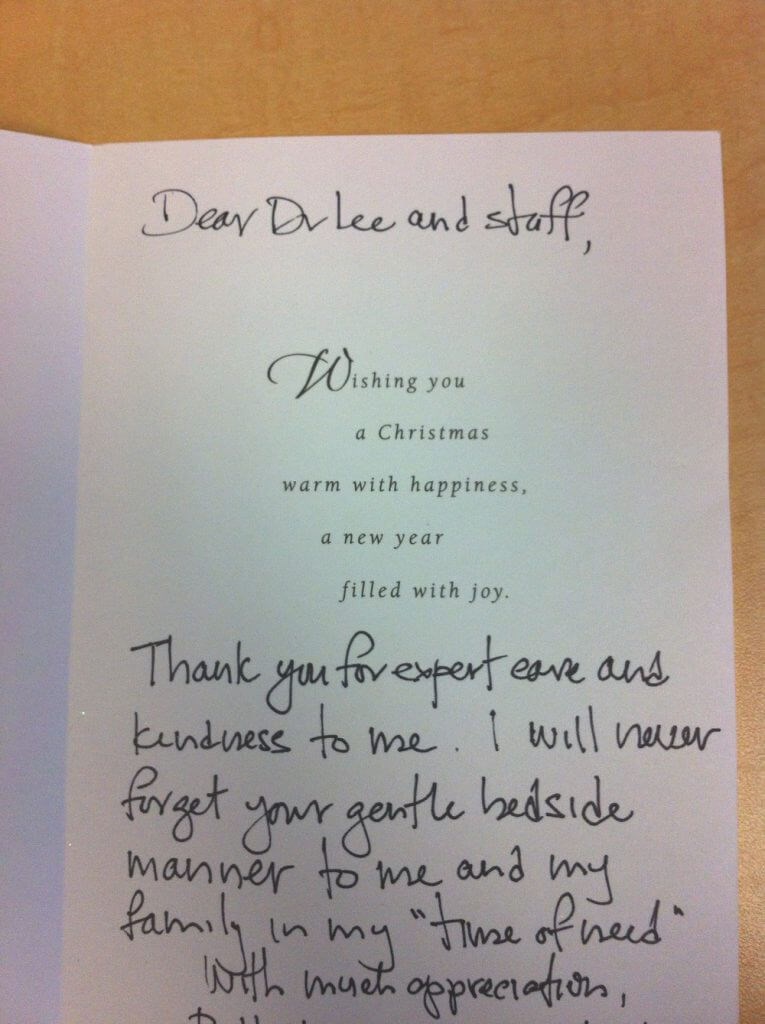 Dear Dr Lee and staff,
Wishing you
a Christmas
warm with happiness,
a new year
filled with joy.
Thank you for expert care and
kindness to me. I will never
forget your gentle bedside
manner to me and my
family in my "time of need"
With much appreciation,